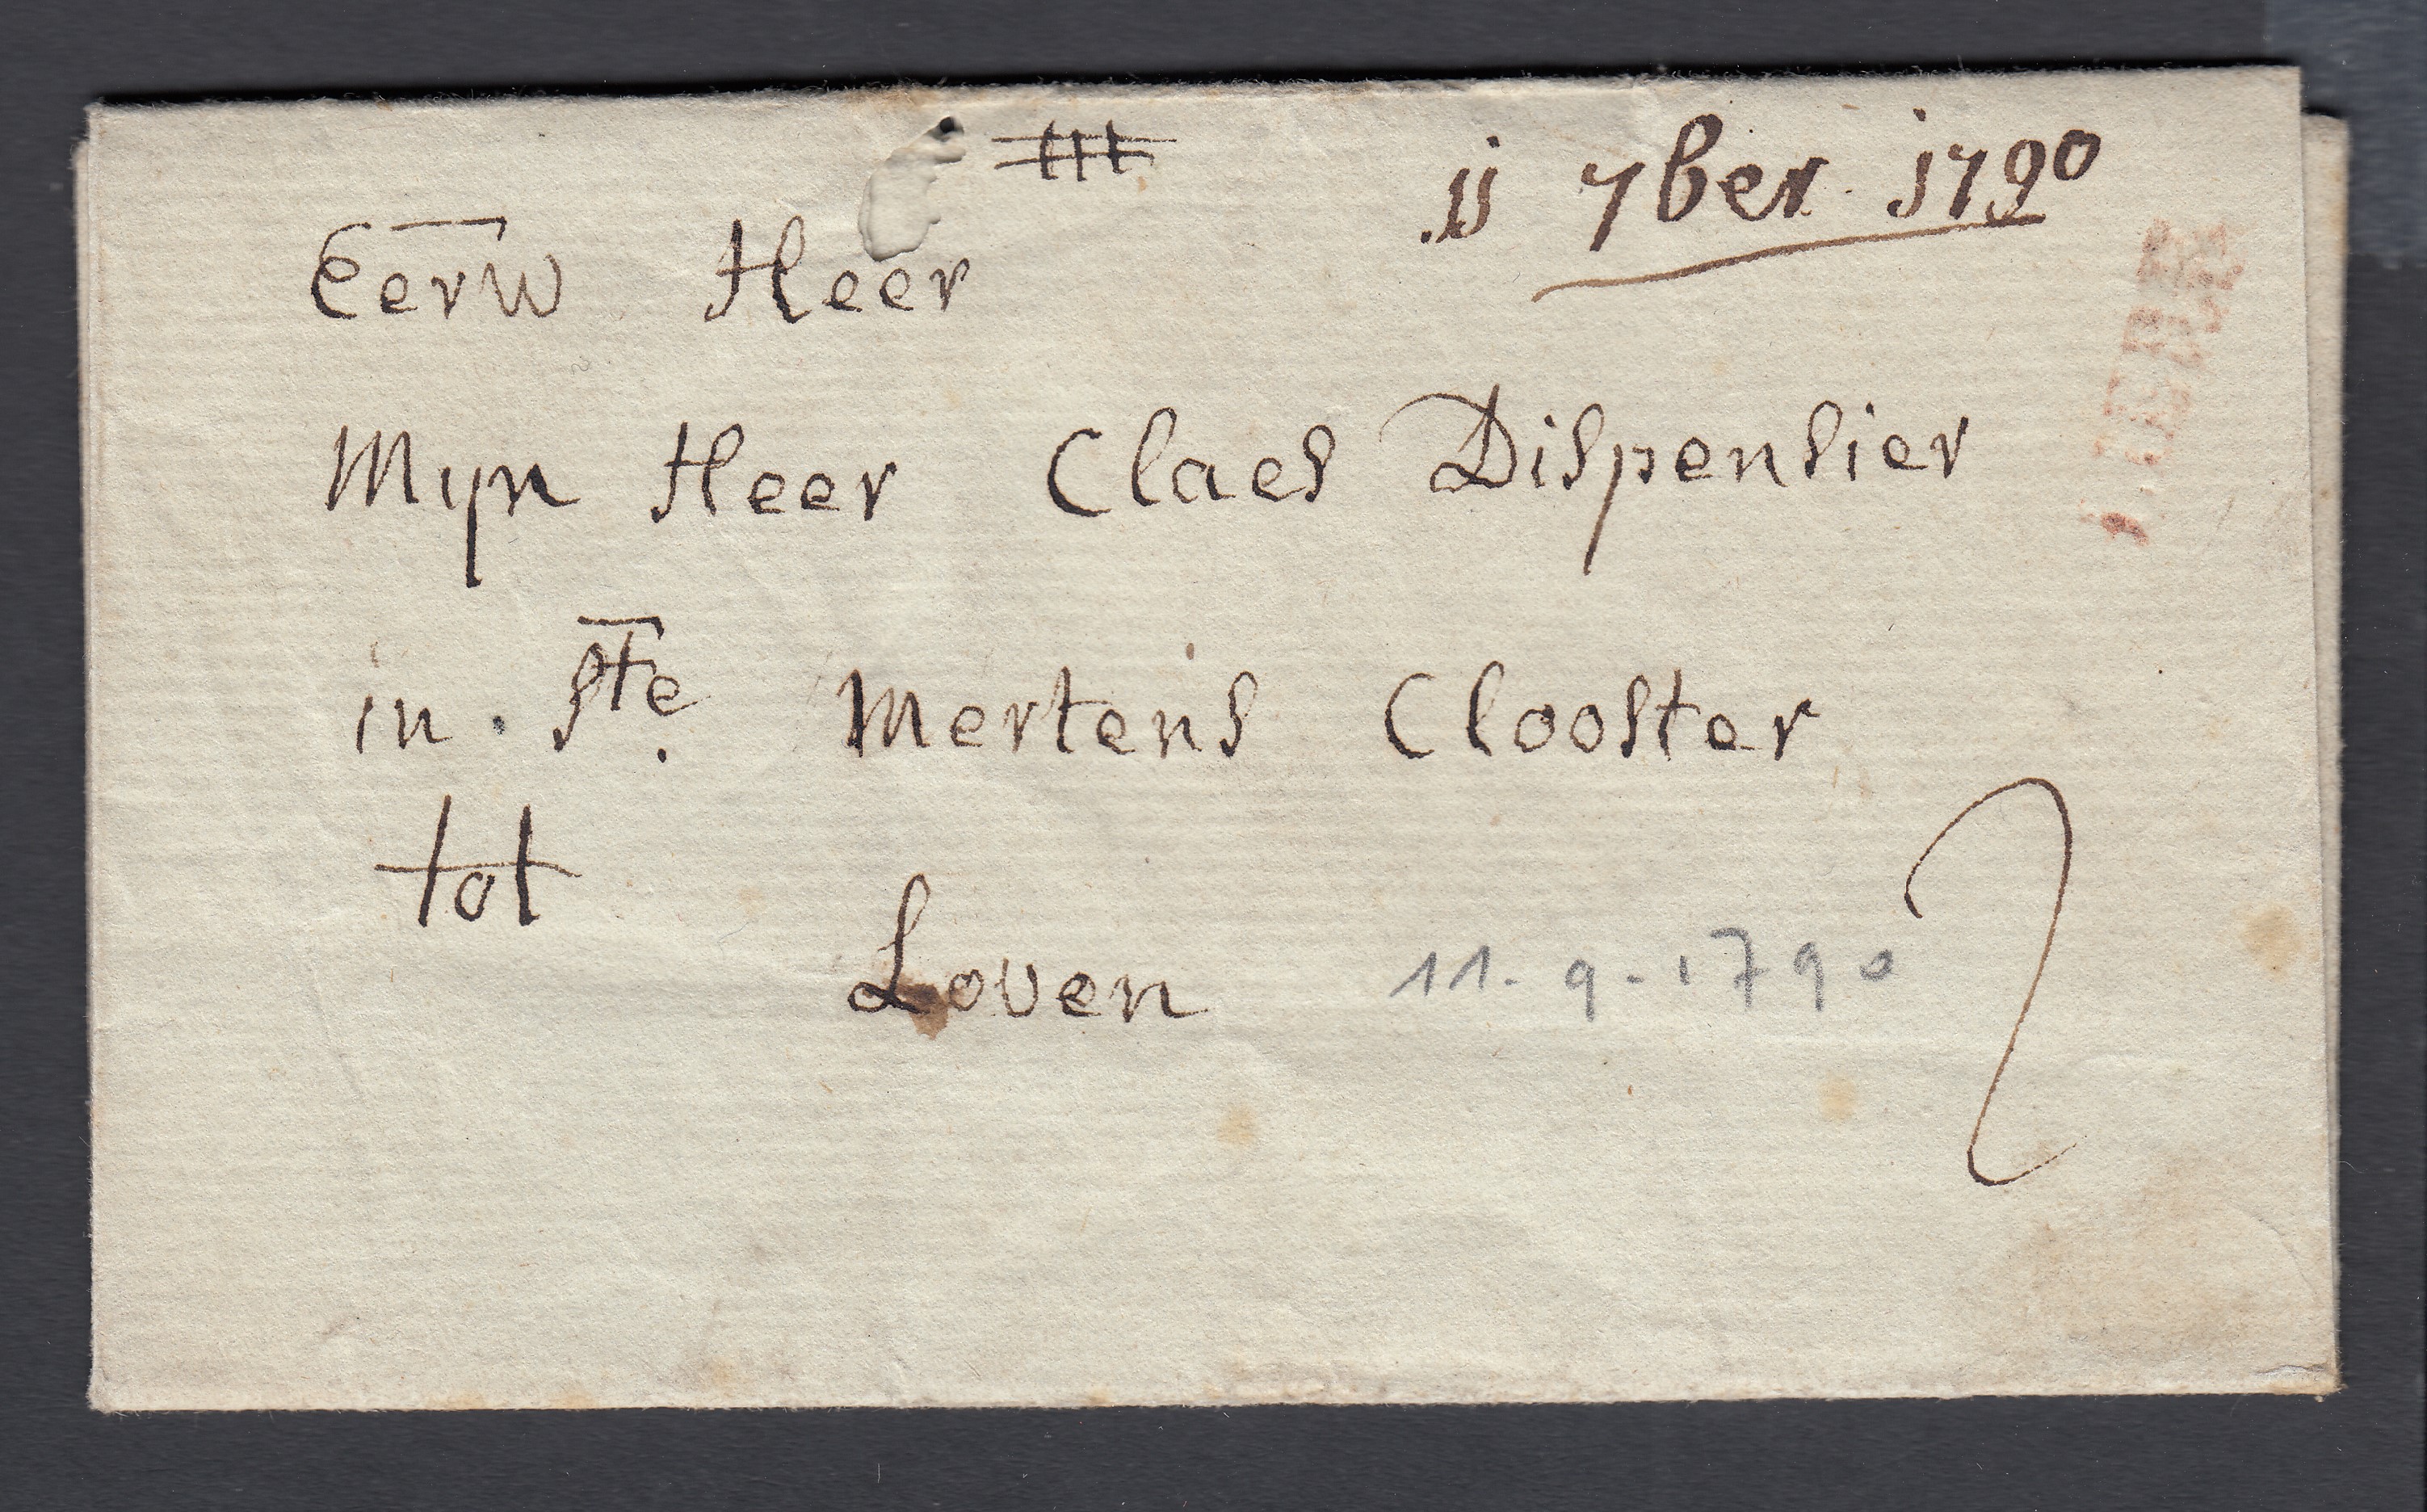 jj 7ber 1790
Eerw Heer
Mijn Heer Claes Dispensier
in. Ste Mertens Clooster
tot
Loven
11-9-1790